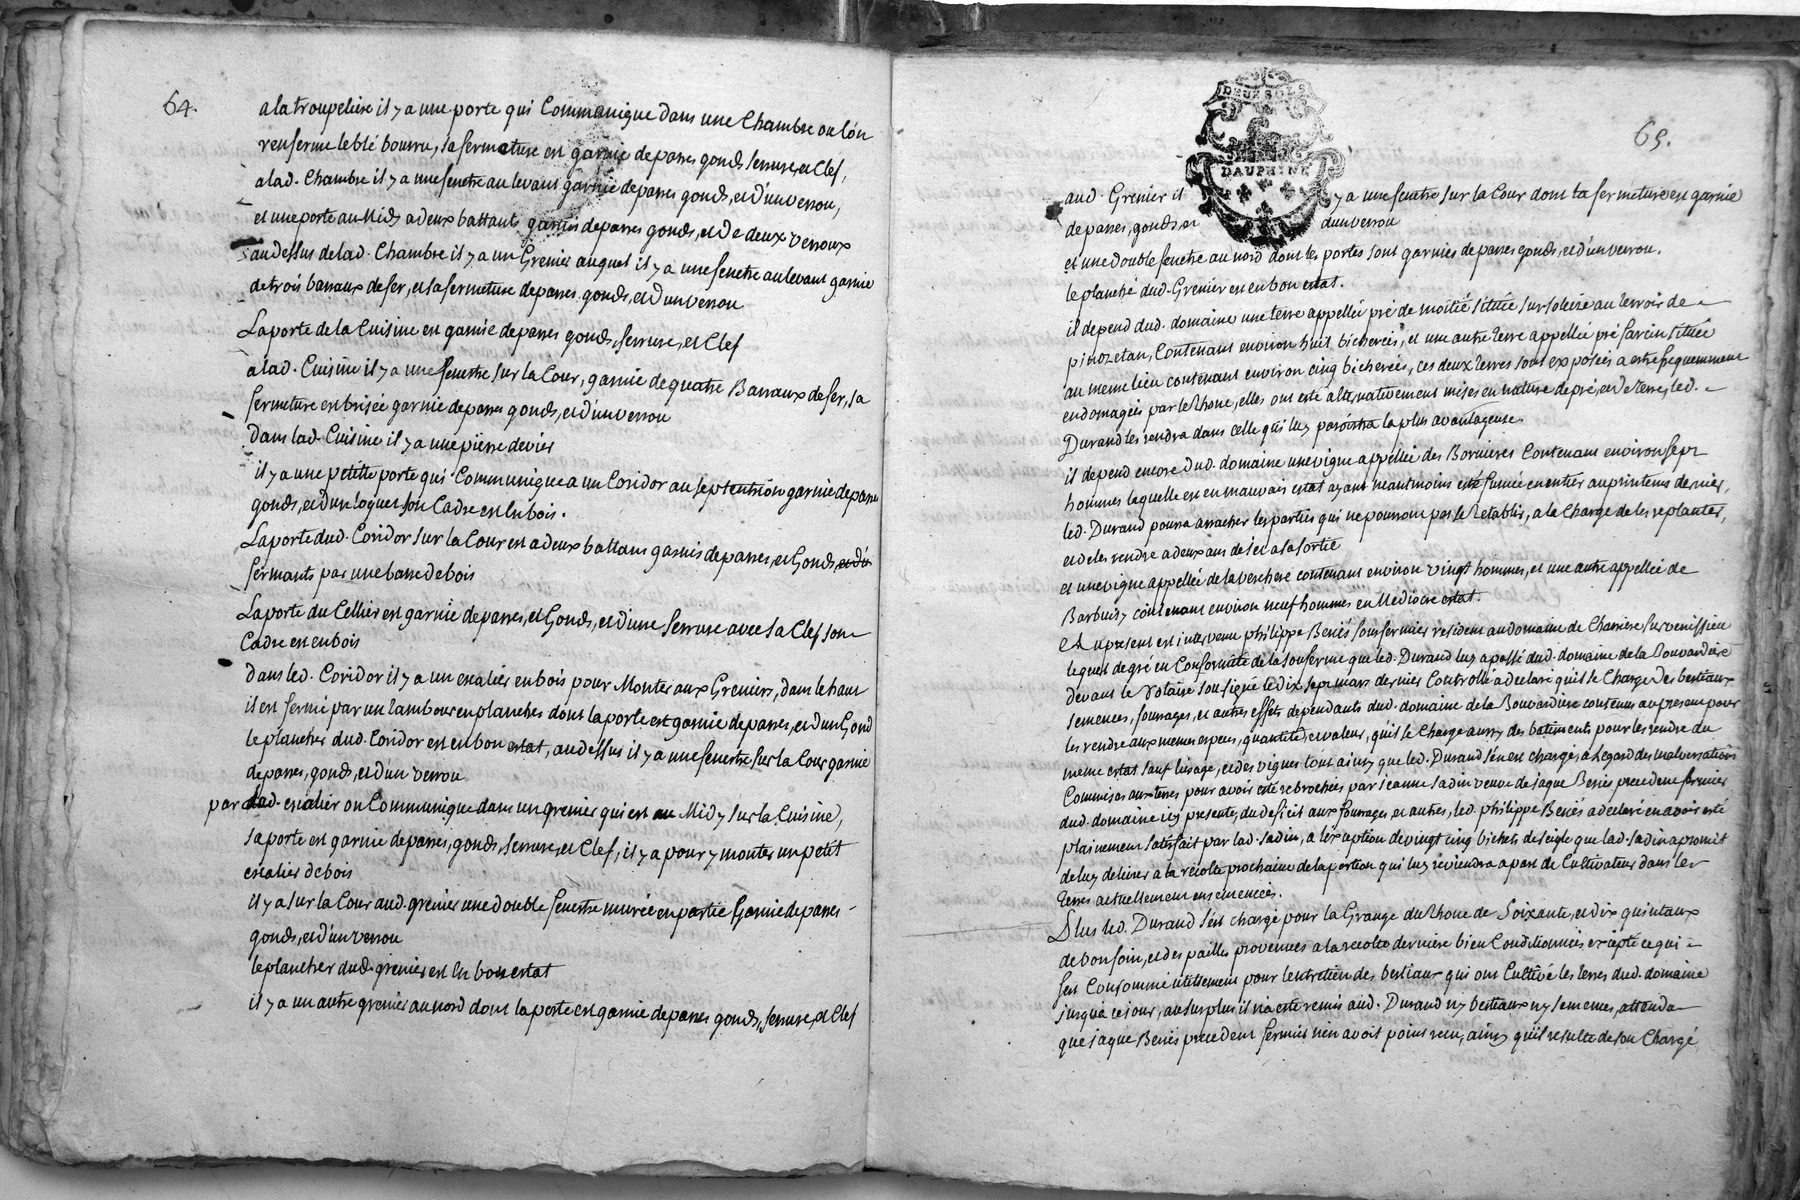 64.
a la troupeliere il y a une porte qui Communique dans une Chambre ou l'on
renferme le blé bourru, sa fermeture est garnie de parres gonds, serrure, et Clef,
a lad. Chambre il y a une fenetre au levant garnie de parres gonds, et d'un verrou,
et une porte au Midy a deux battants garnies de parres gonds, et de deux verroux
au dessus de lad. Chambre il y a un Grenier auquel il y a une fenetre au levant garnie
de trois barraux de fer, et sa fermeture de parres, gonds, et d'un verrou
La porte de la Cuisine est garnie de parres gonds, serrure, et Clef
a lad. Cuisine il y a une fenestre sur la Cour, garnie de quatre Barraux de fer, sa
fermeture est brisée garnie de parres gonds, et d'un verrou
Dans lad. Cuisine il y a une pierre devier
il y a une petitte porte qui Communique a un Coridor au septentrion garnie de parres
gonds, et d'un loquet son Cadre est en bois.
La porte dud. Coridor sur la Cour est a deux battans garnis de parres, et Gonds, et d'u
fermants par une barre de bois
La porte du Cellier est garnie de parres, et Gonds, et d'une serrure avec sa Clef son
Cadre est en bois
dans led. Coridor il y a un escalier en bois pour Monter aux Greniers, dans le haut
il est fermé par un tambour en planches dont la porte est garnie de parres, et d'un Gond
le plancher dud. Coridor est en bon estat, au dessus il y a une fenestre sur la Cour garnie
de parres, gonds, et d'un verrou
par led. escalier on Communique dans un grenier qui est au Midy sur la Cuisine,
sa porte est garnie de parres, gonds, serrure, et Clef, il y a pour y monter un petit
escalier de bois
il y a sur la Cour aud. grenier une double fenestre murée en partie garnie de parres
gonds, et d'un verrou
le plancher dud. grenier est en bon estat
il y a un autre grenier au nord dont la porte est garnie de parres gonds, serrure, et Clef
65.
DEUX SOLS
DAUPHINE
aud. Grenier il y a une fenetre sur la Cour dont la fermeture est garnie
de parres, gonds, et d'un verrou
et une double fenetre au nord dont les portes sont garnies de parres gonds, et d'un verrou.
le planché dud. Grenier est en bon estat.
il depend dud. domaine une terre appellée pré de moitié située sur soleize au terroir de
contenant environ huit bicherées, et une autre terre appellée pré farcin située
au meme lieu contenant environ cinq bicherées, ces deux terres sont exposées a estre frequemment
endomagées par le Rhone, elles ont esté alternativement mises en nature de pré, et de terre, led.
Durand les rendra dans celle qui luy paroistra la plus avantageuse.
il depend encore dud. domaine une vigne appellée des Bornieres Contenant environ sept
hommes laquelle est en mauvais estat ayant neantmoins esté fumée en entier au printems dernier,
led. Durand pourra arracher les parties qui ne pourront pas se retablir, a la Charge de les replanter,
et de les rendre a deux ans de sec a sa sortie
et une vigne appellée de la verchere contenant environ vingt hommes, et une autre appellée de
Barbuisy contenant environ neuf hommes en Mediocre estat.
Et a present est intervenu philippe Beniés sousfermier resident au domaine de Charriere sur venissieu
lequel de gré en Conformité de la sousferme que led. Durand luy a passé dud. domaine de la Bouvardiere
devant le Notaire soussigné le dix sept mars dernier Controllé a declaré qu'il se Charge des bestiaux
semences, fourrages, et autres effets dependants dud. domaine de la Bouvardiere contenus au present pour
les rendre aux memes especes, quantités, et valeur, qu'il se Charge aussy des batiments pour les rendre au
meme estat sauf l'usage, et des vignes tout ainsy que led. Durand s'en est chargé, a l'egard des malversations
Commises aux terres pour avoir esté rebrochées par jeanne sadin veuve de jaque Beniés precedent fermier
dud. domaine icy presente, du deficit aux fourrages et autres, led. philippe Beniés a declaré en avoir esté
plainement satisfait par lad. sadin, a l'exception de vingt cinq bichets de seigle que lad. sadin a promit
de luy delivrer a la recolte prochaine de la portion qui luy reviendra a part de Cultivateur dans les
terres actuellement ensemencées.
Plus led. Durand s'est chargé pour la Grange du Rhone de soixante, et dix quintaux
de bon foin, et des pailles provenues a la recolte derniere bien Conditionnées excepté ce qui
s'est Consommé utillement pour l'entretien des bestiaux qui ont Cultivé les terres dud. domaine
jusqu'a ce jour, au surplus il n'a esté remis aud. Durand ny bestiaux ny semences, attendu
que jaque Beniés precedent fermier n'en avoit point recu, ainsy qu'il resulte de son Chargé